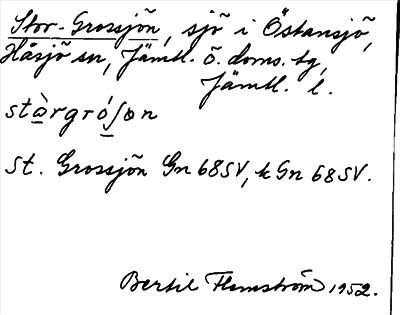 Stor-Grossjön, sjö i Östansjö,
Håsjö sn, Jämtl. ö. doms. tg,
Jämtl. l.
stàrgróʃøn
St. Grossjön Gn 68 SV, k Gn 68 SV.
Bertil Flemström 1952.